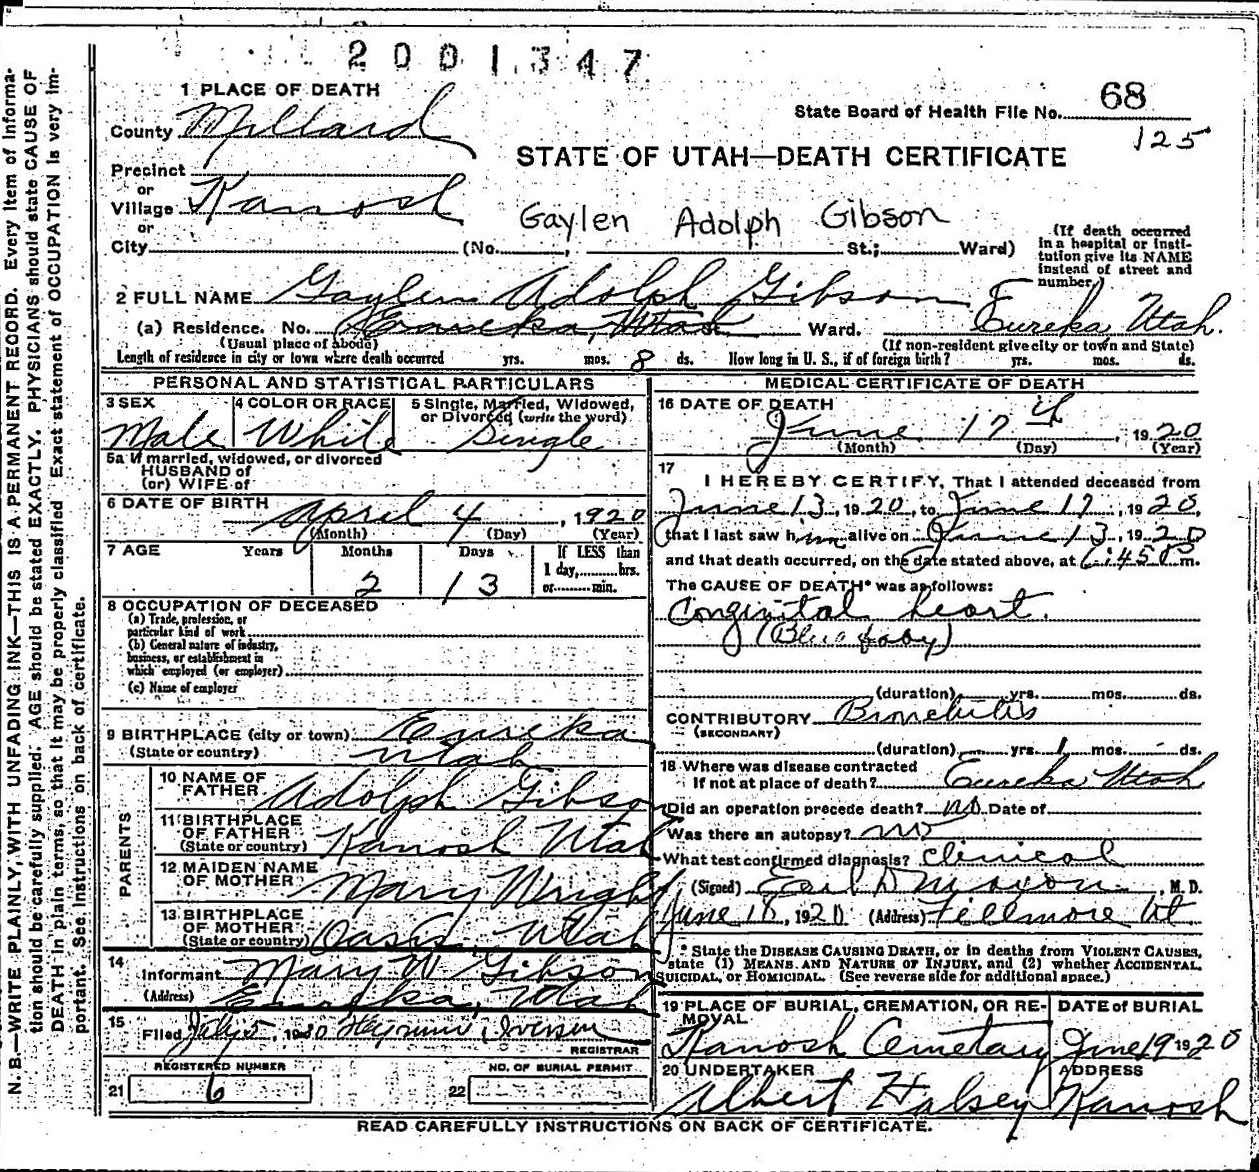 2001347
1 PLACE OF DEATH
State Board of Health File No. 68
125
County Millard
STATE OF UTAH—DEATH CERTIFICATE
Precinct
or
Village Kanosh
or
Gaylen Adolph Gibson
City (No. , St.; Ward)
(If death occurred in a hospital or insti-
tution give its NAME
instead of street and
number.)
2 FULL NAME Gaylen Adolph Gibson
(a) Residence. No. Eureka, Utah St. Ward. Eureka, Utah.
(Usual place of abode) (If non-resident give city or town and State)
Length of residence in city or town where death occurred yrs. mos. 8 ds. How long in U. S., if of foreign birth? yrs. mos. ds.
PERSONAL AND STATISTICAL PARTICULARS
3 SEX Male
4 COLOR OR RACE White
5 Single, Married, Widowed,
or Divorced (write the word)
Single
5a If married, widowed, or divorced
HUSBAND of
(or) WIFE of
6 DATE OF BIRTH
April 4, 1920
(Month) (Day) (Year)
7 AGE Years Months Days If LESS than
1 day, hrs.
or min.
2 13
8 OCCUPATION OF DECEASED
(a) Trade, profession, or
particular kind of work
(b) General nature of industry,
business, or establishment in
which employed (or employer)
(c) Name of employer
9 BIRTHPLACE (city or town) Eureka
(State or country) Utah
PARENTS
10 NAME OF
FATHER Adolph Gibson
11 BIRTHPLACE
OF FATHER
(State or country) Kanosh Utah
12 MAIDEN NAME
OF MOTHER Mary Wright
13 BIRTHPLACE
OF MOTHER
(State or country) Oasis, Utah
14
Informant Mary W Gibson
(Address) Eureka, Utah
15
Filed July 5, 1920 Iverson
REGISTRAR
REGISTERED NUMBER
21 6
NO. OF BURIAL PERMIT
22
MEDICAL CERTIFICATE OF DEATH
16 DATE OF DEATH
June 17th, 1920
(Month) (Day) (Year)
17
I HEREBY CERTIFY, That I attended deceased from
June 13, 1920, to June 17, 1920,
that I last saw him alive on June 13, 1920
and that death occurred, on the date stated above, at 6:45 P m.
The CAUSE OF DEATH* was as follows:
Conginital heart.
(Blue baby)
(duration) yrs. mos. ds.
CONTRIBUTORY Bronchitis
(SECONDARY)
(duration) — yrs. 1 mos. - ds.
18 Where was disease contracted
If not at place of death? Eureka Utah
Did an operation precede death? no Date of
Was there an autopsy? no
What test confirmed diagnosis? clinical
(Signed) , M. D.
June 18, 1920 (Address) Fillmore Ut
* State the DISEASE CAUSING DEATH, or in deaths from VIOLENT CAUSES,
state (1) MEANS AND NATURE OF INJURY, and (2) whether ACCIDENTAL,
SUICIDAL, or HOMICIDAL. (See reverse side for additional space.)
19 PLACE OF BURIAL, CREMATION, OR RE-
MOVAL
Kanosh Cemetary
DATE of BURIAL
June 19 1920
20 UNDERTAKER
Albert Halsey
ADDRESS
Kanosh
READ CAREFULLY INSTRUCTIONS ON BACK OF CERTIFICATE.
N. B.—WRITE PLAINLY, WITH UNFADING INK—THIS IS A PERMANENT RECORD. Every item of informa-
tion should be carefully supplied. AGE should be stated EXACTLY. PHYSICIANS should state CAUSE OF
DEATH in plain terms, so that it may be properly classified. Exact statement of OCCUPATION is very im-
portant. See instructions on back of certificate.